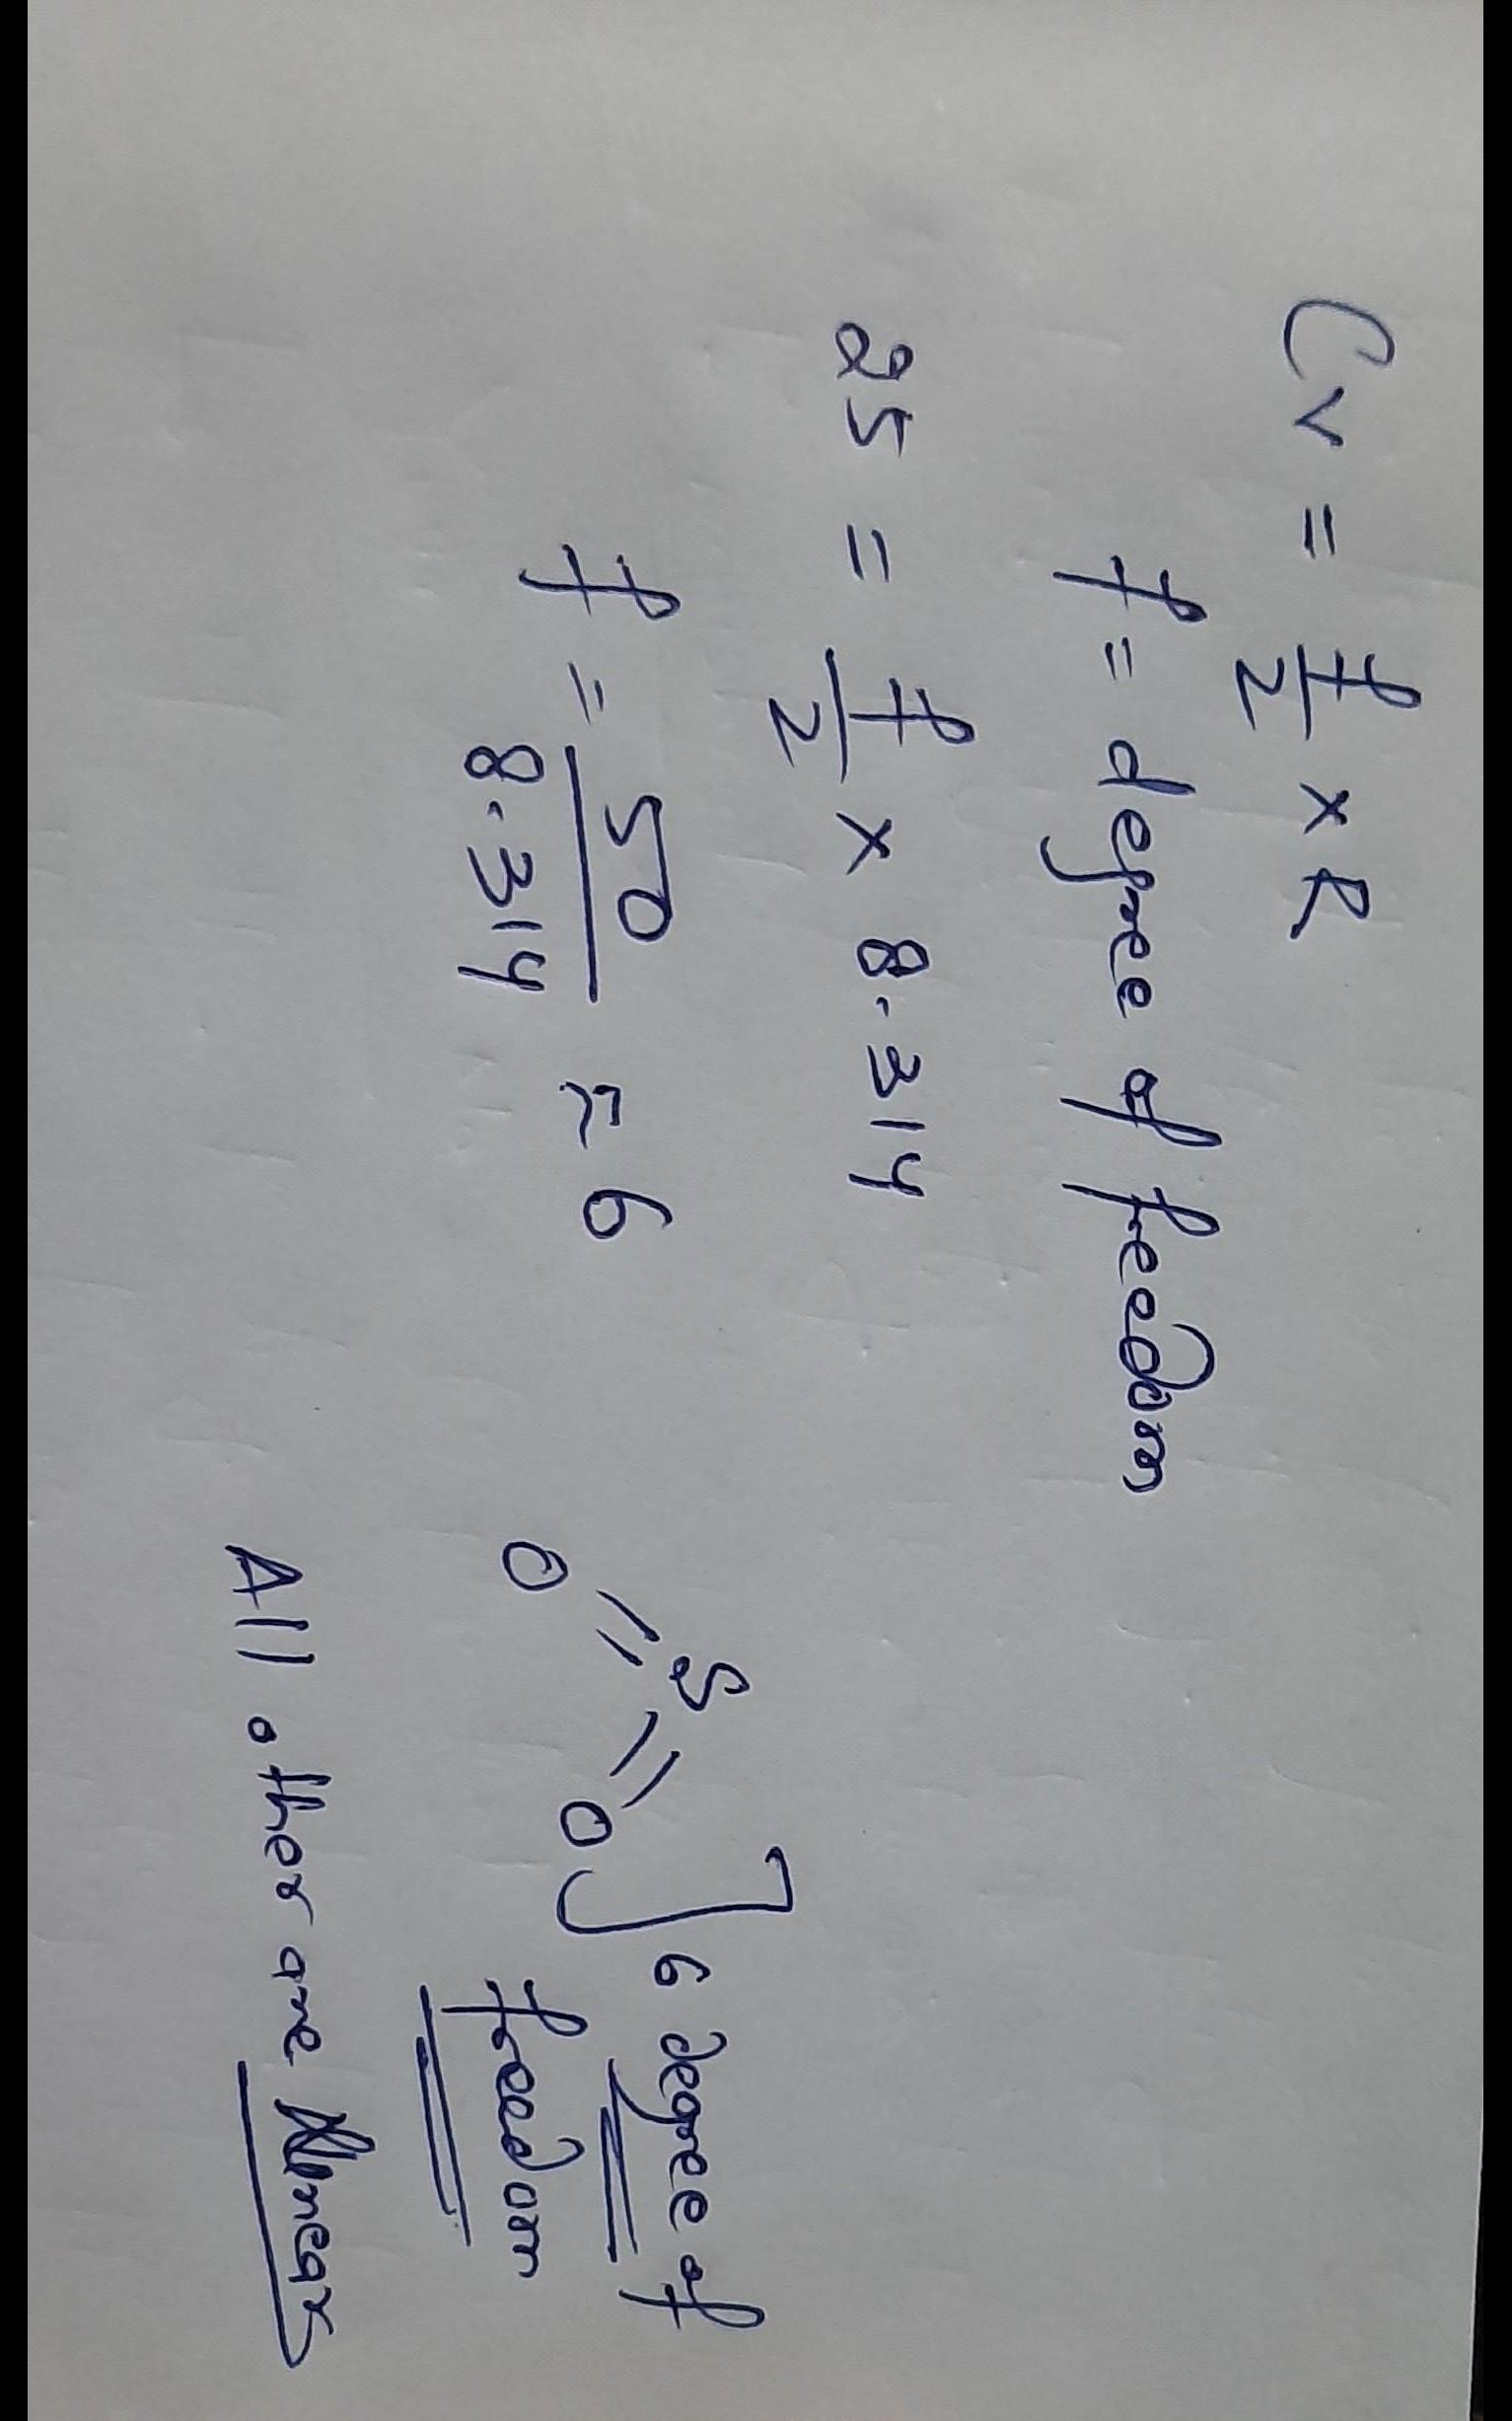 Cv = f/2 × R
f = degree of freedom
25 = f/2 × 8.314
f = 50/8.314 ≈ 6
O=S=O] 6 degree of
freedom
All other are linear